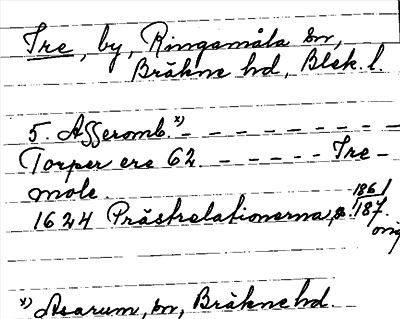 Tre, by, Ringamåla sn,
Bräkne hd, Blek. l.
5. Asseromb.x) - - - - - - - -
Torper ere 62. - - - - - Tre-
mole.
1624 Prästrelationerna, s. 186/187.
orig
x) Asarum, sn, Bräkne hd.